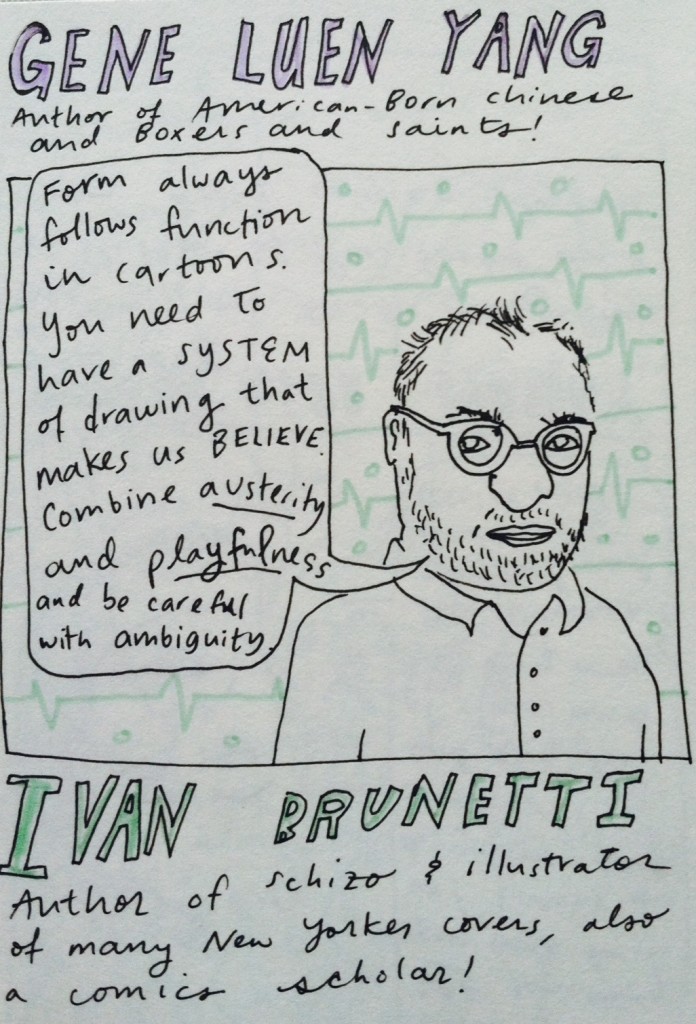 GENE LUEN YANG
Author of American-Born Chinese
and Boxers and saints!
Form always
follows function
in cartoons.
You need to
have a SYSTEM
of drawing that
makes us BELIEVE.
Combine austerity
and playfulness
and be careful
with ambiguity.
IVAN BRUNETTI
Author of schizo & illustrator
of many New Yorker covers, also
a comics scholar!